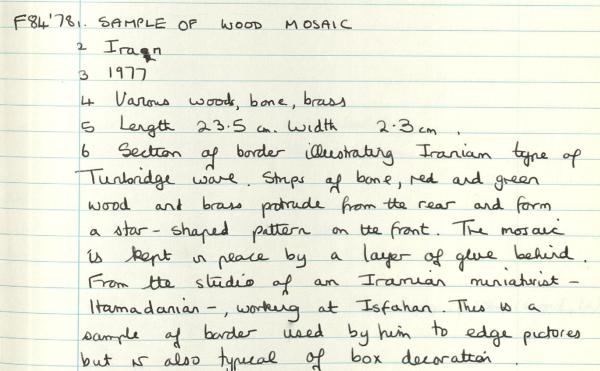 F84'78 1. SAMPLE OF WOOD MOSAIC
2 Iran
3 1977
4 Various woods, bone, brass
5 Length 23.5 cm. Width 2.3 cm.
6 Section of border illustrating Iranian type of
Tunbridge ware. Strips of bone, red and green
wood and brass protrude from the rear and form
a star-shaped pattern on the front. The mosaic
is kept in peace by a layer of glue behind.
From the studio of an Iranian miniaturist -
Hamadanian -, working at Isfahan. This is a
sample of border used by him to edge pictures
but is also typical of box decoration.